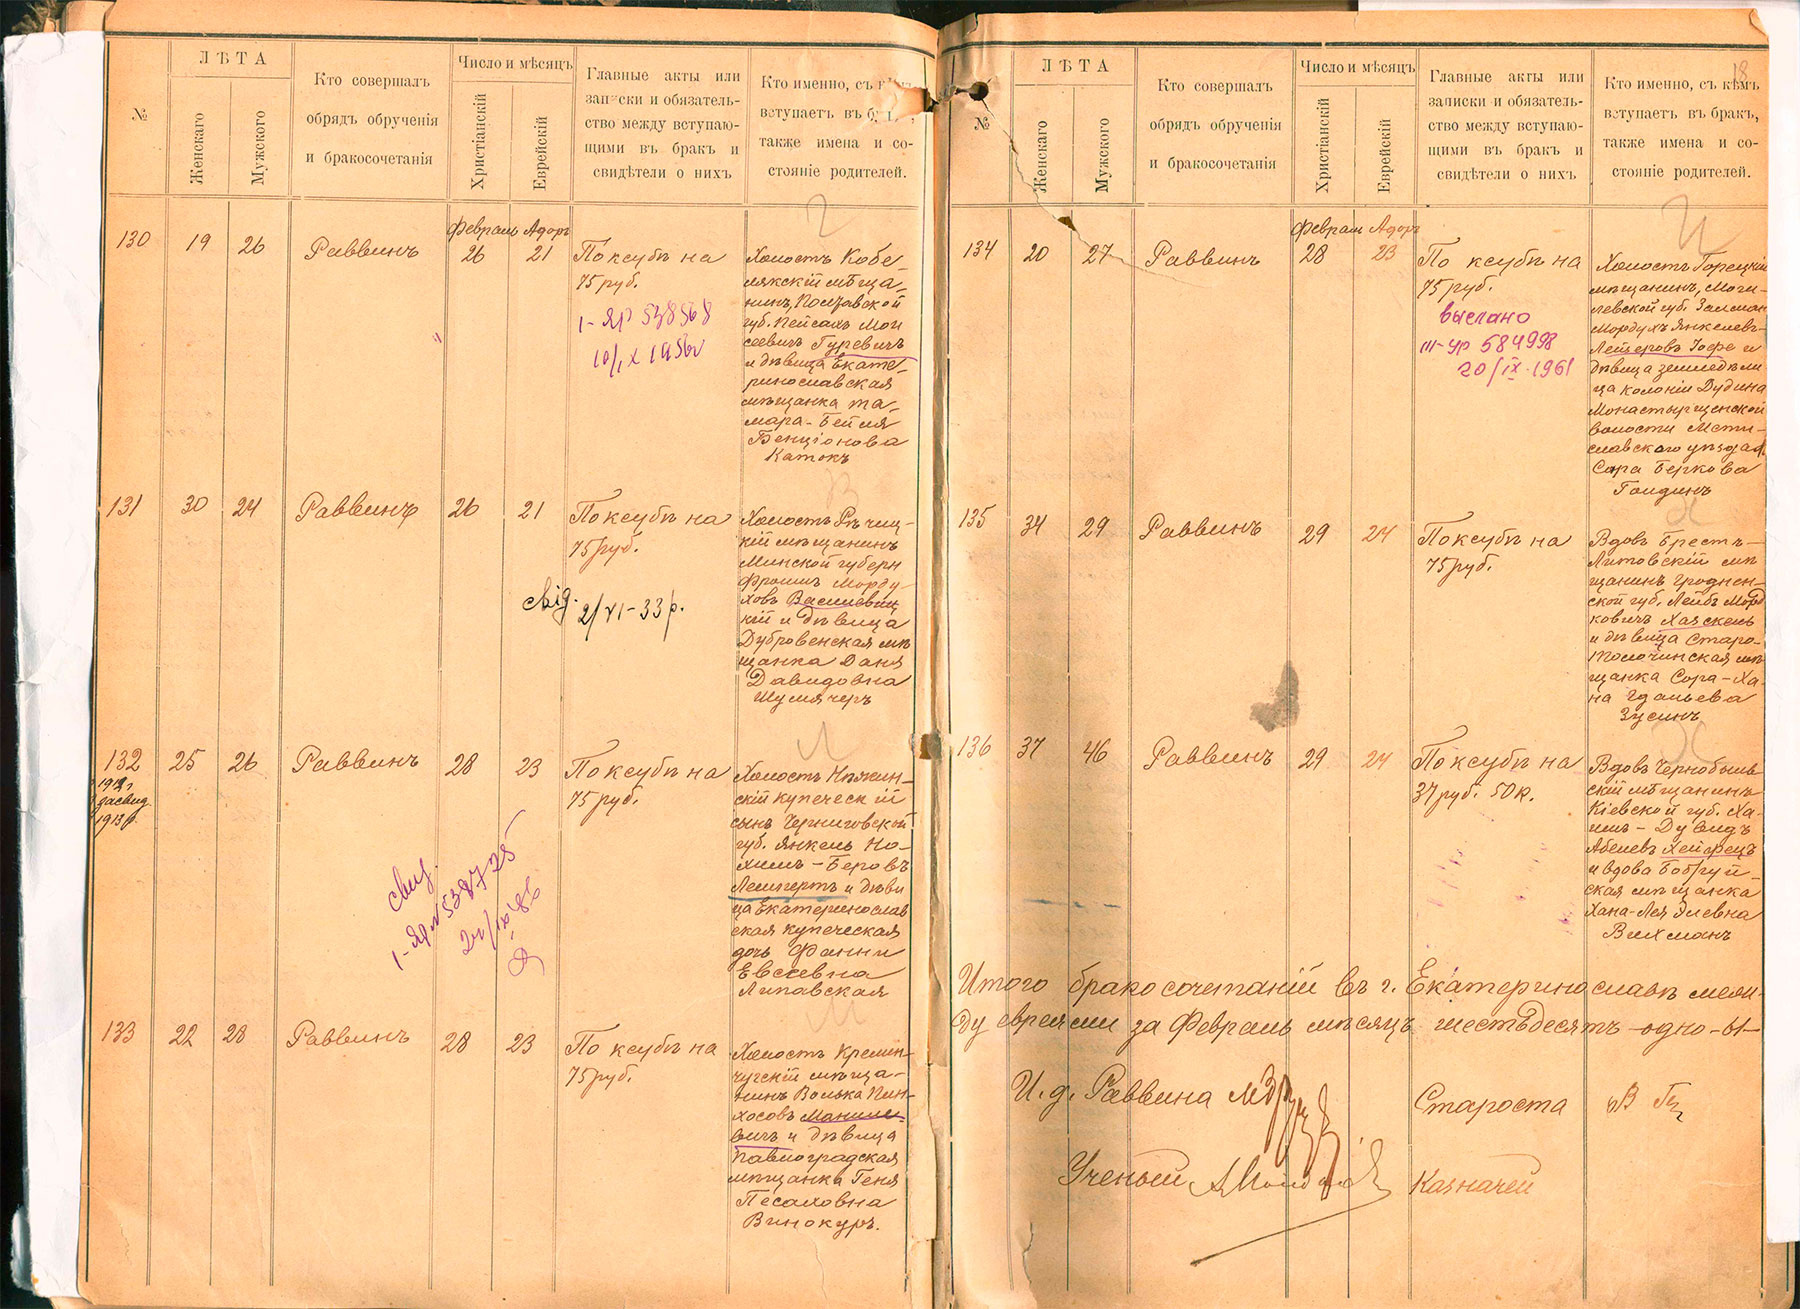 №
ЛѢТА
Женскаго
Мужского
Кто совершалъ
обрядъ обрученія
и бракосочетанія
Число и мѣсяцъ
Христіанскій
Еврейскій
Главные акты или
записки и обязатель-
ство между вступаю-
щими въ бракъ и
свидѣтели о нихъ
Кто именно, съ
вступаетъ въ
также имена и со-
стояніе родителей.
Февраль Адоръ
130 19 26 Раввинъ 26 21
По ксубѣ на
75 руб.
538568
Холостъ Кобе-
лякскій мѣща-
нинъ, Полтавской
губ. Пейсахъ Мои
сеевичъ Гуревичъ
и дѣвица Екате-
ринославская
мѣщанка Та-
мара-Бейля
Бенціонова
Катокъ
131 30 24 Раввинъ 26 21
По ксубѣ на
75 руб.
2/VI-33 р.
Холостъ Рѣчиц-
кій мѣщанинъ
Минской губерн
Фроимъ Морду-
ховъ Василевиц
кій и дѣвица
Дубровенская мѣ
щанка Даня
Давидовна
Шумячеръ
132 25 26 Раввинъ 28 23
засвид.
1913 р.
По ксубѣ на
75 руб.
538725
Холостъ Нѣжин-
скій купеческій
сынъ Черниговской
губ. Янкель Но-
химъ-Беровъ
Лемпертъ и дѣви
ца Екатеринослав
ская купеческая
дочь Фанни
Евсеевна
Липавская
133 22 28 Раввинъ 28 23
По ксубѣ на
75 руб.
Холостъ Кремен-
чугскій мѣща-
нинъ Волька Пин-
хосовъ Маниле-
вичъ и дѣвица
Павлоградская
мѣщанка Геня
Песаховна
Винокуръ.
18
№
ЛѢТА
Женскаго
Мужского
Кто совершалъ
обрядъ обрученія
и бракосочетанія
Число и мѣсяцъ
Христіанскій
Еврейскій
Главные акты или
записки и обязатель-
ство между вступаю-
щими въ бракъ и
свидѣтели о нихъ
Кто именно, съ кѣмъ
вступаетъ въ бракъ,
также имена и со-
стояніе родителей.
Февраль Адоръ
134 20 27 Раввинъ 28 23
По ксубѣ на
75 руб.
выслано
584998
20/IX.1961
Холостъ Горецкій
мѣщанинъ, Моги-
левской губ. Залман
Мордухъ Янкелевъ-
Лейзеровъ Іофе и
дѣвица земледѣли
ца колоніи Дудина
Монастырщенской
волости Мсти-
славского уѣзда
Сора Беркова
Гондинъ
135 34 29 Раввинъ 29 24
По ксубѣ на
75 руб.
Вдовъ Брестъ-
Литовскій мѣ
щанинъ Гроднен-
ской губ. Лейбъ Морд
ковичъ Хаяскель
и дѣвица Старо-
Толочинская мѣ
щанка Сора-Ха
на Гдальева
Зусинъ
136 37 46 Раввинъ 29 24
По ксубѣ на
37 руб. 50 к.
Вдовъ Чернобыль
скій мѣщанинъ
Кіевской губ. Ха-
имъ-Дувидъ
Абелевъ Хейфецъ
и вдова Бобруй-
ская мѣщанка
Хана-Лея Элевна
Вихманъ
Итого бракосочетаній въ г. Екатеринославѣ меж-
ду евреями за Февраль мѣсяцъ шестьдесятъ одно-61-
И. д. Раввина
Староста
Ученый
Казначей